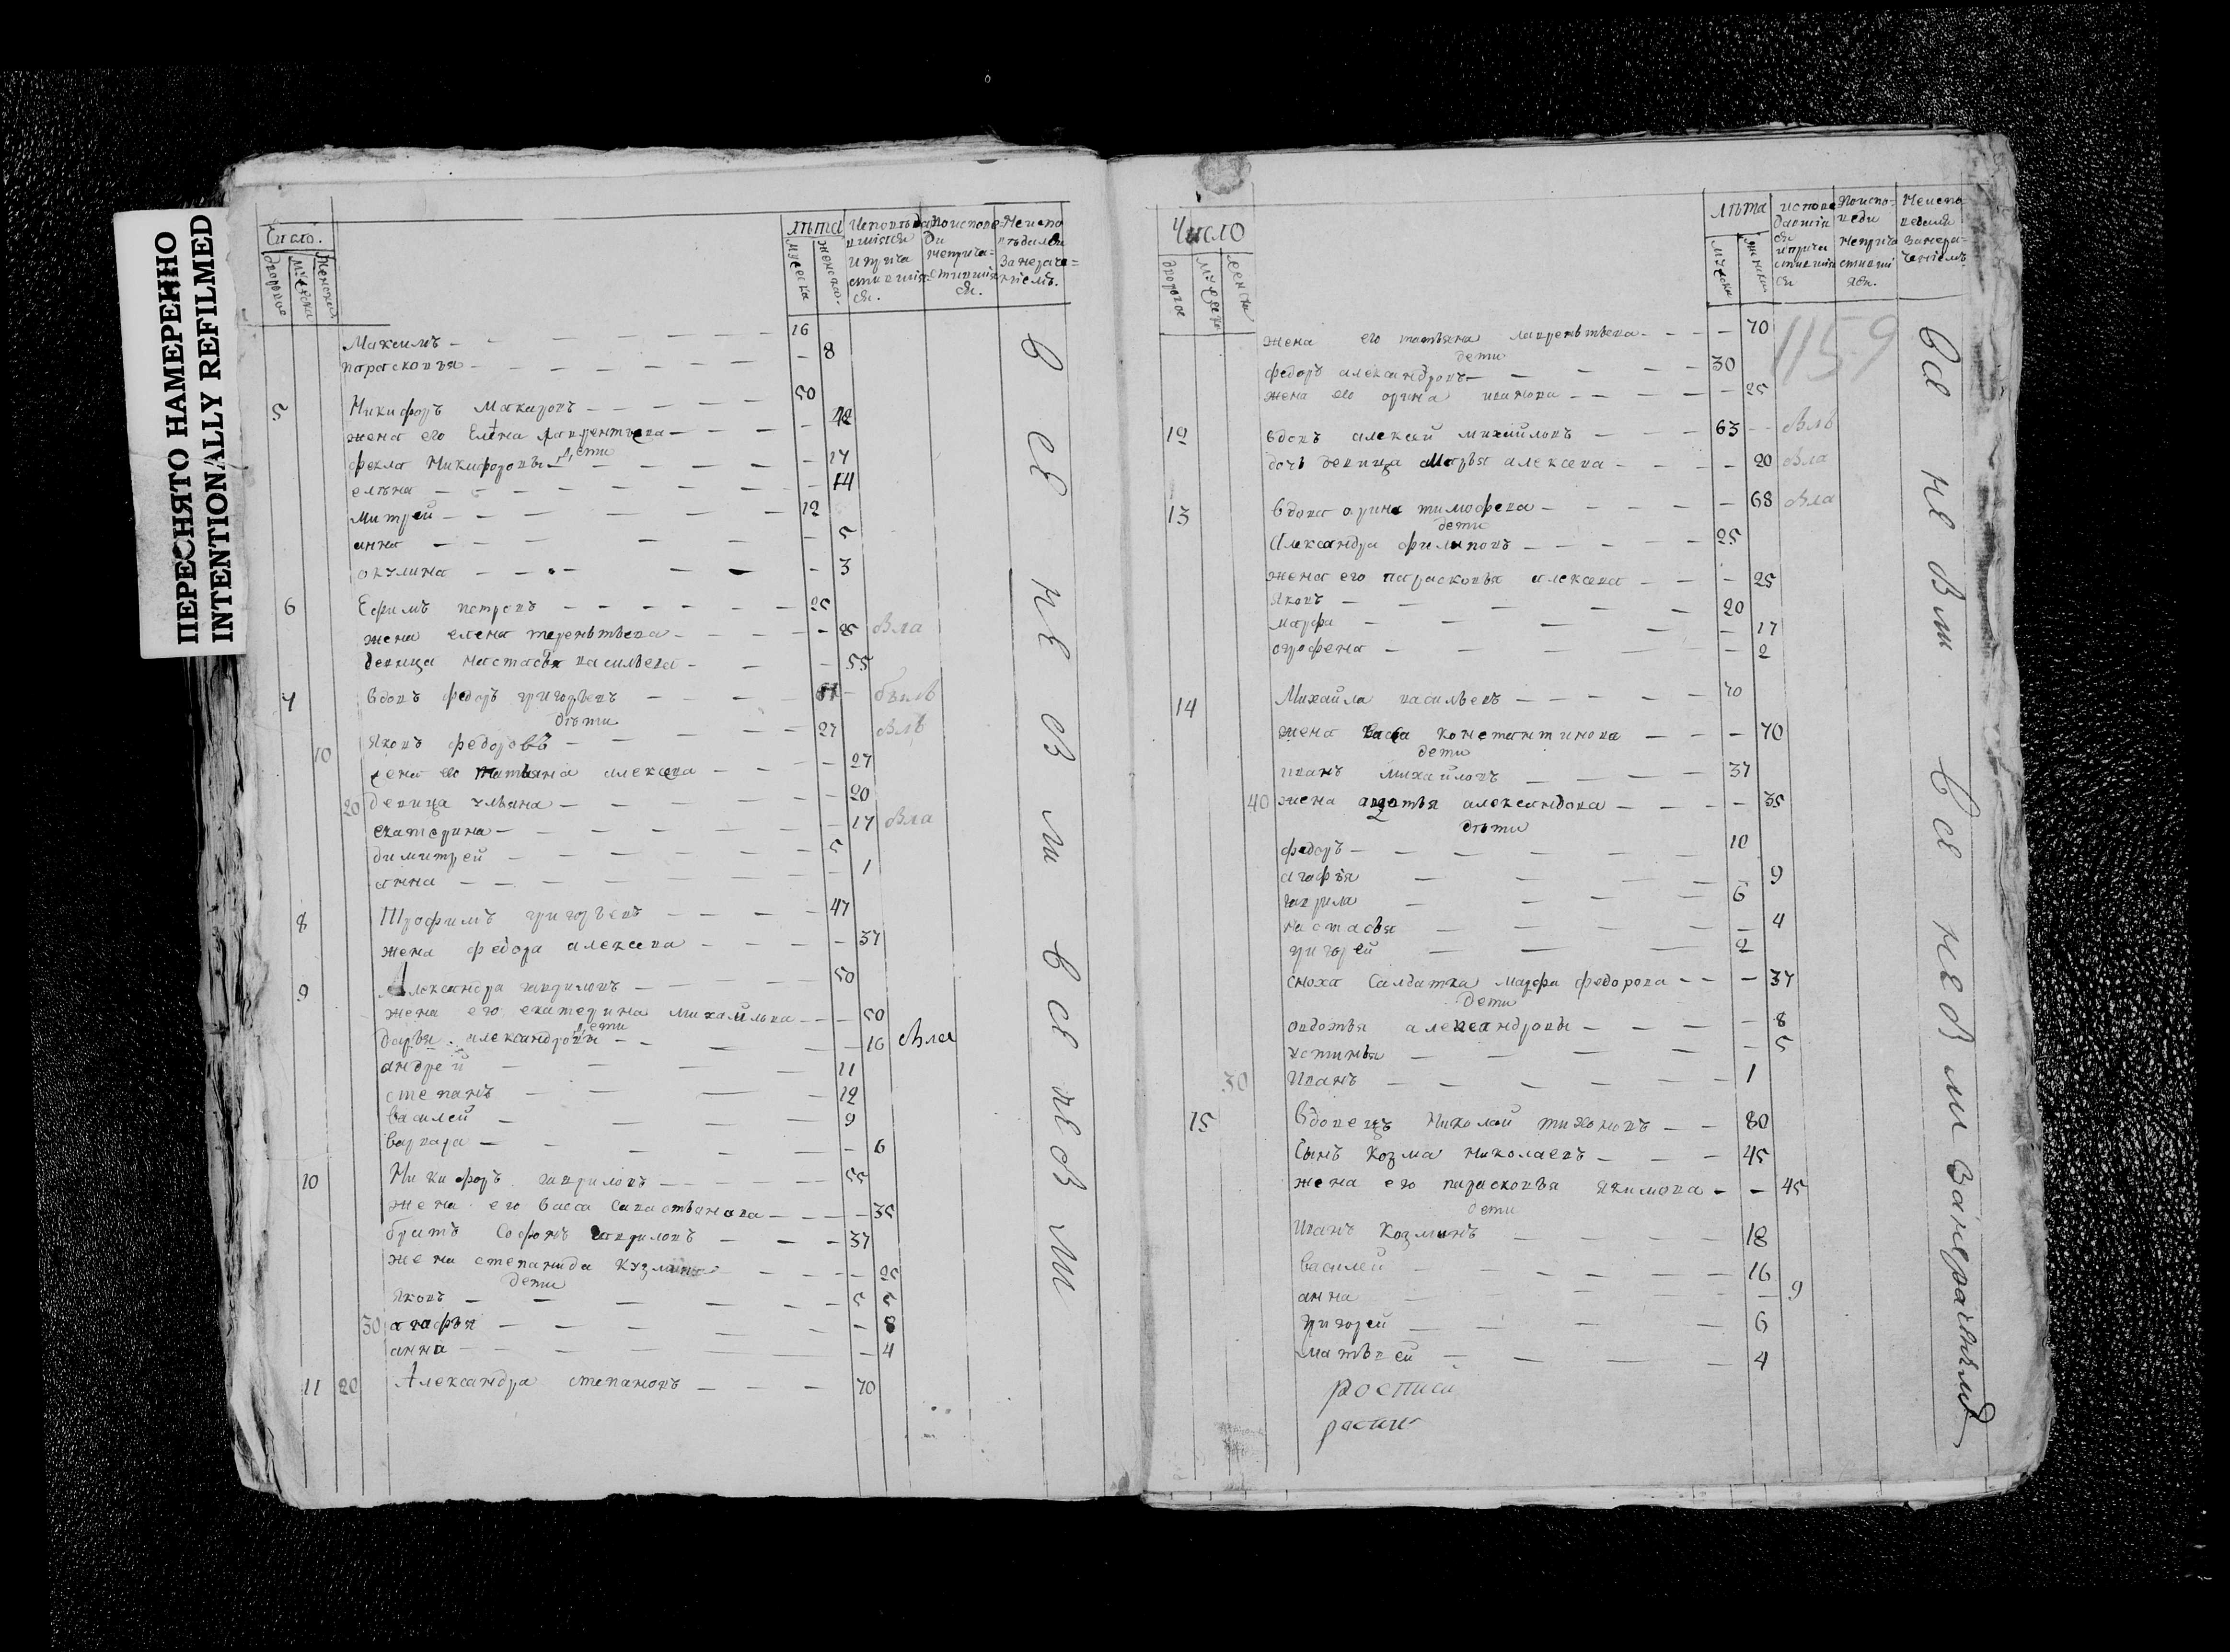 ПЕРЕСНЯТО НАМЕРЕННО
INTENTIONALLY REFILMED
Число.
дворовое
мужеска
женска
лѣта
мужеска
женска.
Исповѣдавшіися и причастившіися.
По исповеди непричастившіися.
Неисповѣдались за нерачѣніемъ.
Максимъ — 16
парасковъя — 8
5 Никифоръ Макаровъ — 50
жена его Елена Лаврентьева — 42
дети
фекла Никифоровы — 17
елѣна — 14
митрей — 12
анна — 5
окулина — 3
6 Ефимъ петровъ — 25
жена елена терентьева
девица настасья васильева — 55
7 вдовъ федоръ григорьевъ
дѣти
10 яковъ федоровъ — 27
жена ео татьяна алексева — 27
20 девица ульяна — 20
екатерина — 17
димитрей — 5
анна — 1
8 Трофимъ григорьевъ — 47
жена федора алексева — 37
9 Александра гавриловъ — 50
жена его екатерина михайлова — 50
дети
дарья александровы — 16
андрей — 11
степанъ — 12
василей — 9
варвара — 6
10 Никифоръ гавриловъ — 55
жена его васса савастьянова — 35
братъ Софонъ гавриловъ — 37
жена степанида кузмина — 25
дети
яковъ — 5 5
30 агафья — 8
анна — 4
11 20 Александра степановъ — 70
все не были все небыли
Число
дворовое
мужеска
женска
лѣта
мужеска
женска
исповедавшіися и причастившіися
По исповеди непричастившіися.
Неисповедался за нерачѣніемъ.
1159
жена его татьяна лаврентьева — 70
дети
федоръ александровъ — 30
жена ео орина иванова — 25
12 вдовъ алексей михайловъ — 63
дочь девица марья алексева — 20
13 вдова орина тимофева — 68
дети
Александра филиповъ — 25
жена его парасковья алексева — 25
яковъ — 20
марфа — 17
огрофена — 2
14 Михайла васильевъ — 70
жена васса константинова — 70
дети
иванъ михайловъ — 37
40 жена авдотья александова — 35
дѣти
федоръ — 10
агафья — 9
гаврила — 6
настасья — 4
григорей — 2
сноха салдатка марфа федорова — 37
дети
овдотья александровы — 8
устинья — 5
30 Иванъ — 1
15 Вдовецъ Николай тихоновъ — 80
Сынъ Козма николаевъ — 45
жена его парасковья якимова — 45
дети
Иванъ козминъ — 18
василей — 16
анна — 9
григорей — 6
матьвей — 4
росписи